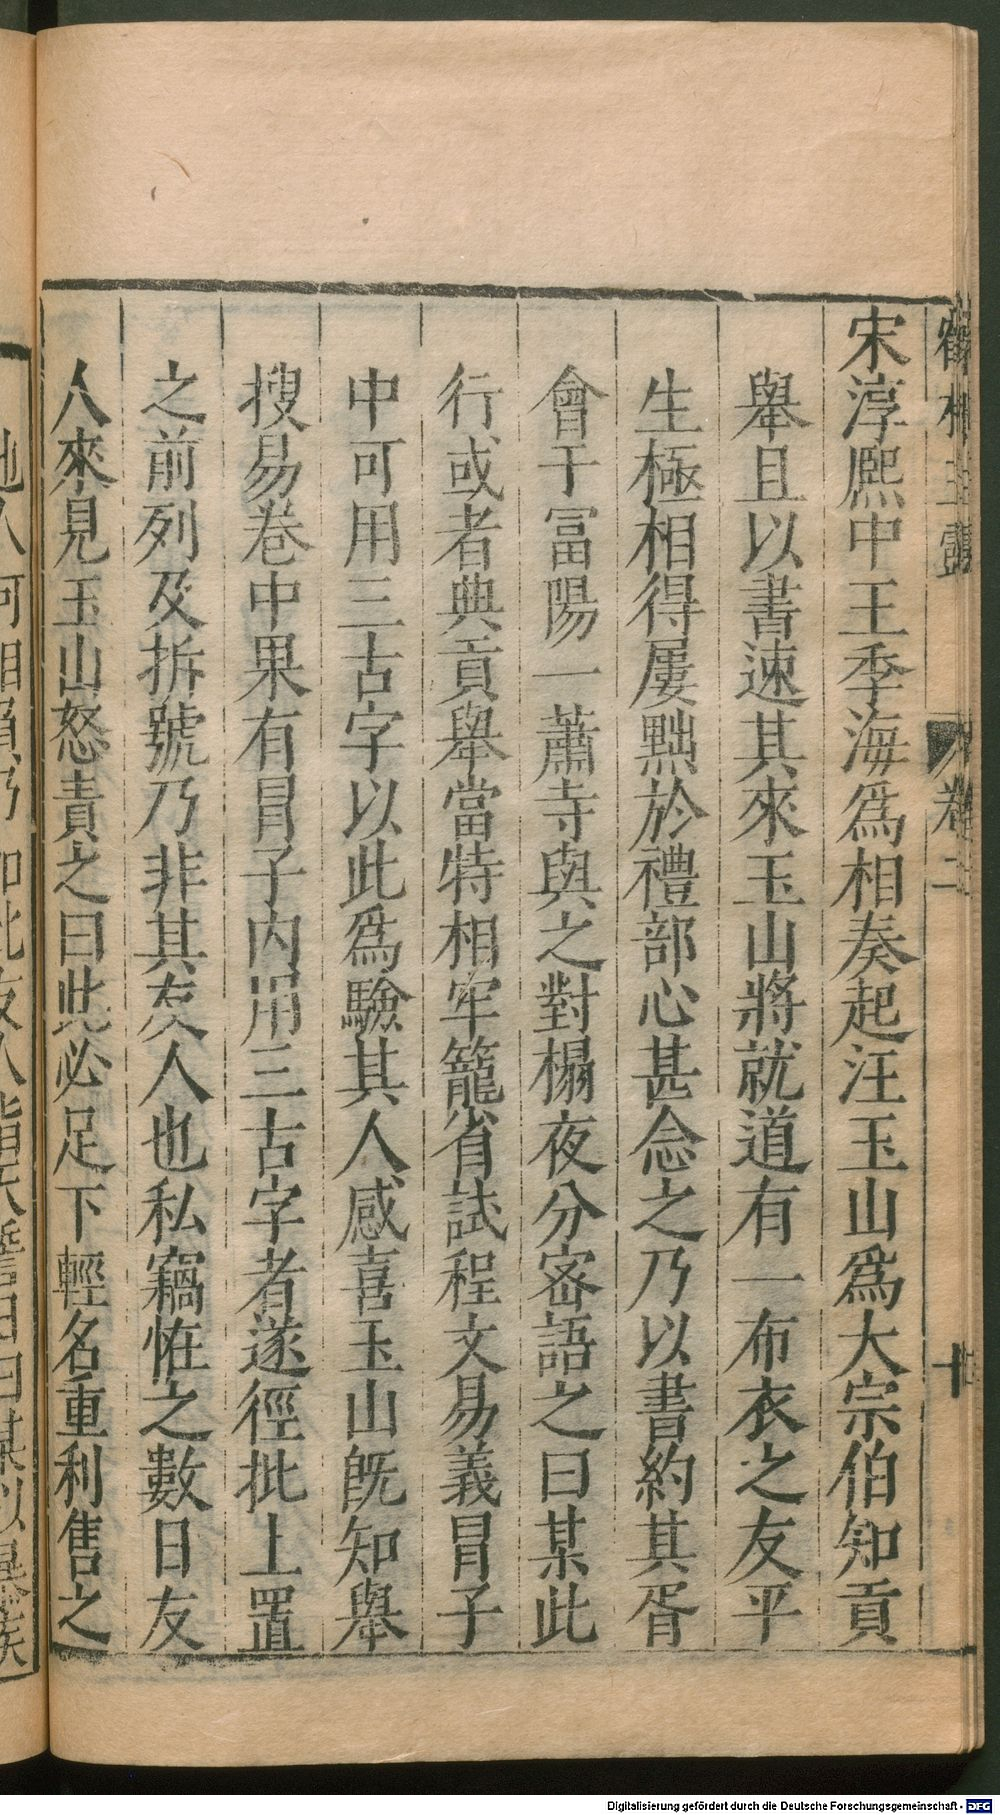 宋淳熈中王季海爲相奏起汪玉山爲大宗伯知貢
舉且以書速其來玉山將就道有一布衣之友平
生極相得屢黜於禮部心甚念之乃以書約其胥
會于冨陽一蕭寺與之對榻夜分密語之曰某此
行或者典貢舉當特相牢籠省試程文易義冒子
中可用三古字以此爲驗其人感喜玉山旣知舉
搜易卷中果有冒子内用三古字者遂徑批上置
之前列及拆號乃非其友人也私竊恠之數日友
人來見玉山怒責之曰此必足下輕名重利售之
卷二
Digitalisierung gefördert durch die Deutsche Forschungsgemeinschaft - DFG